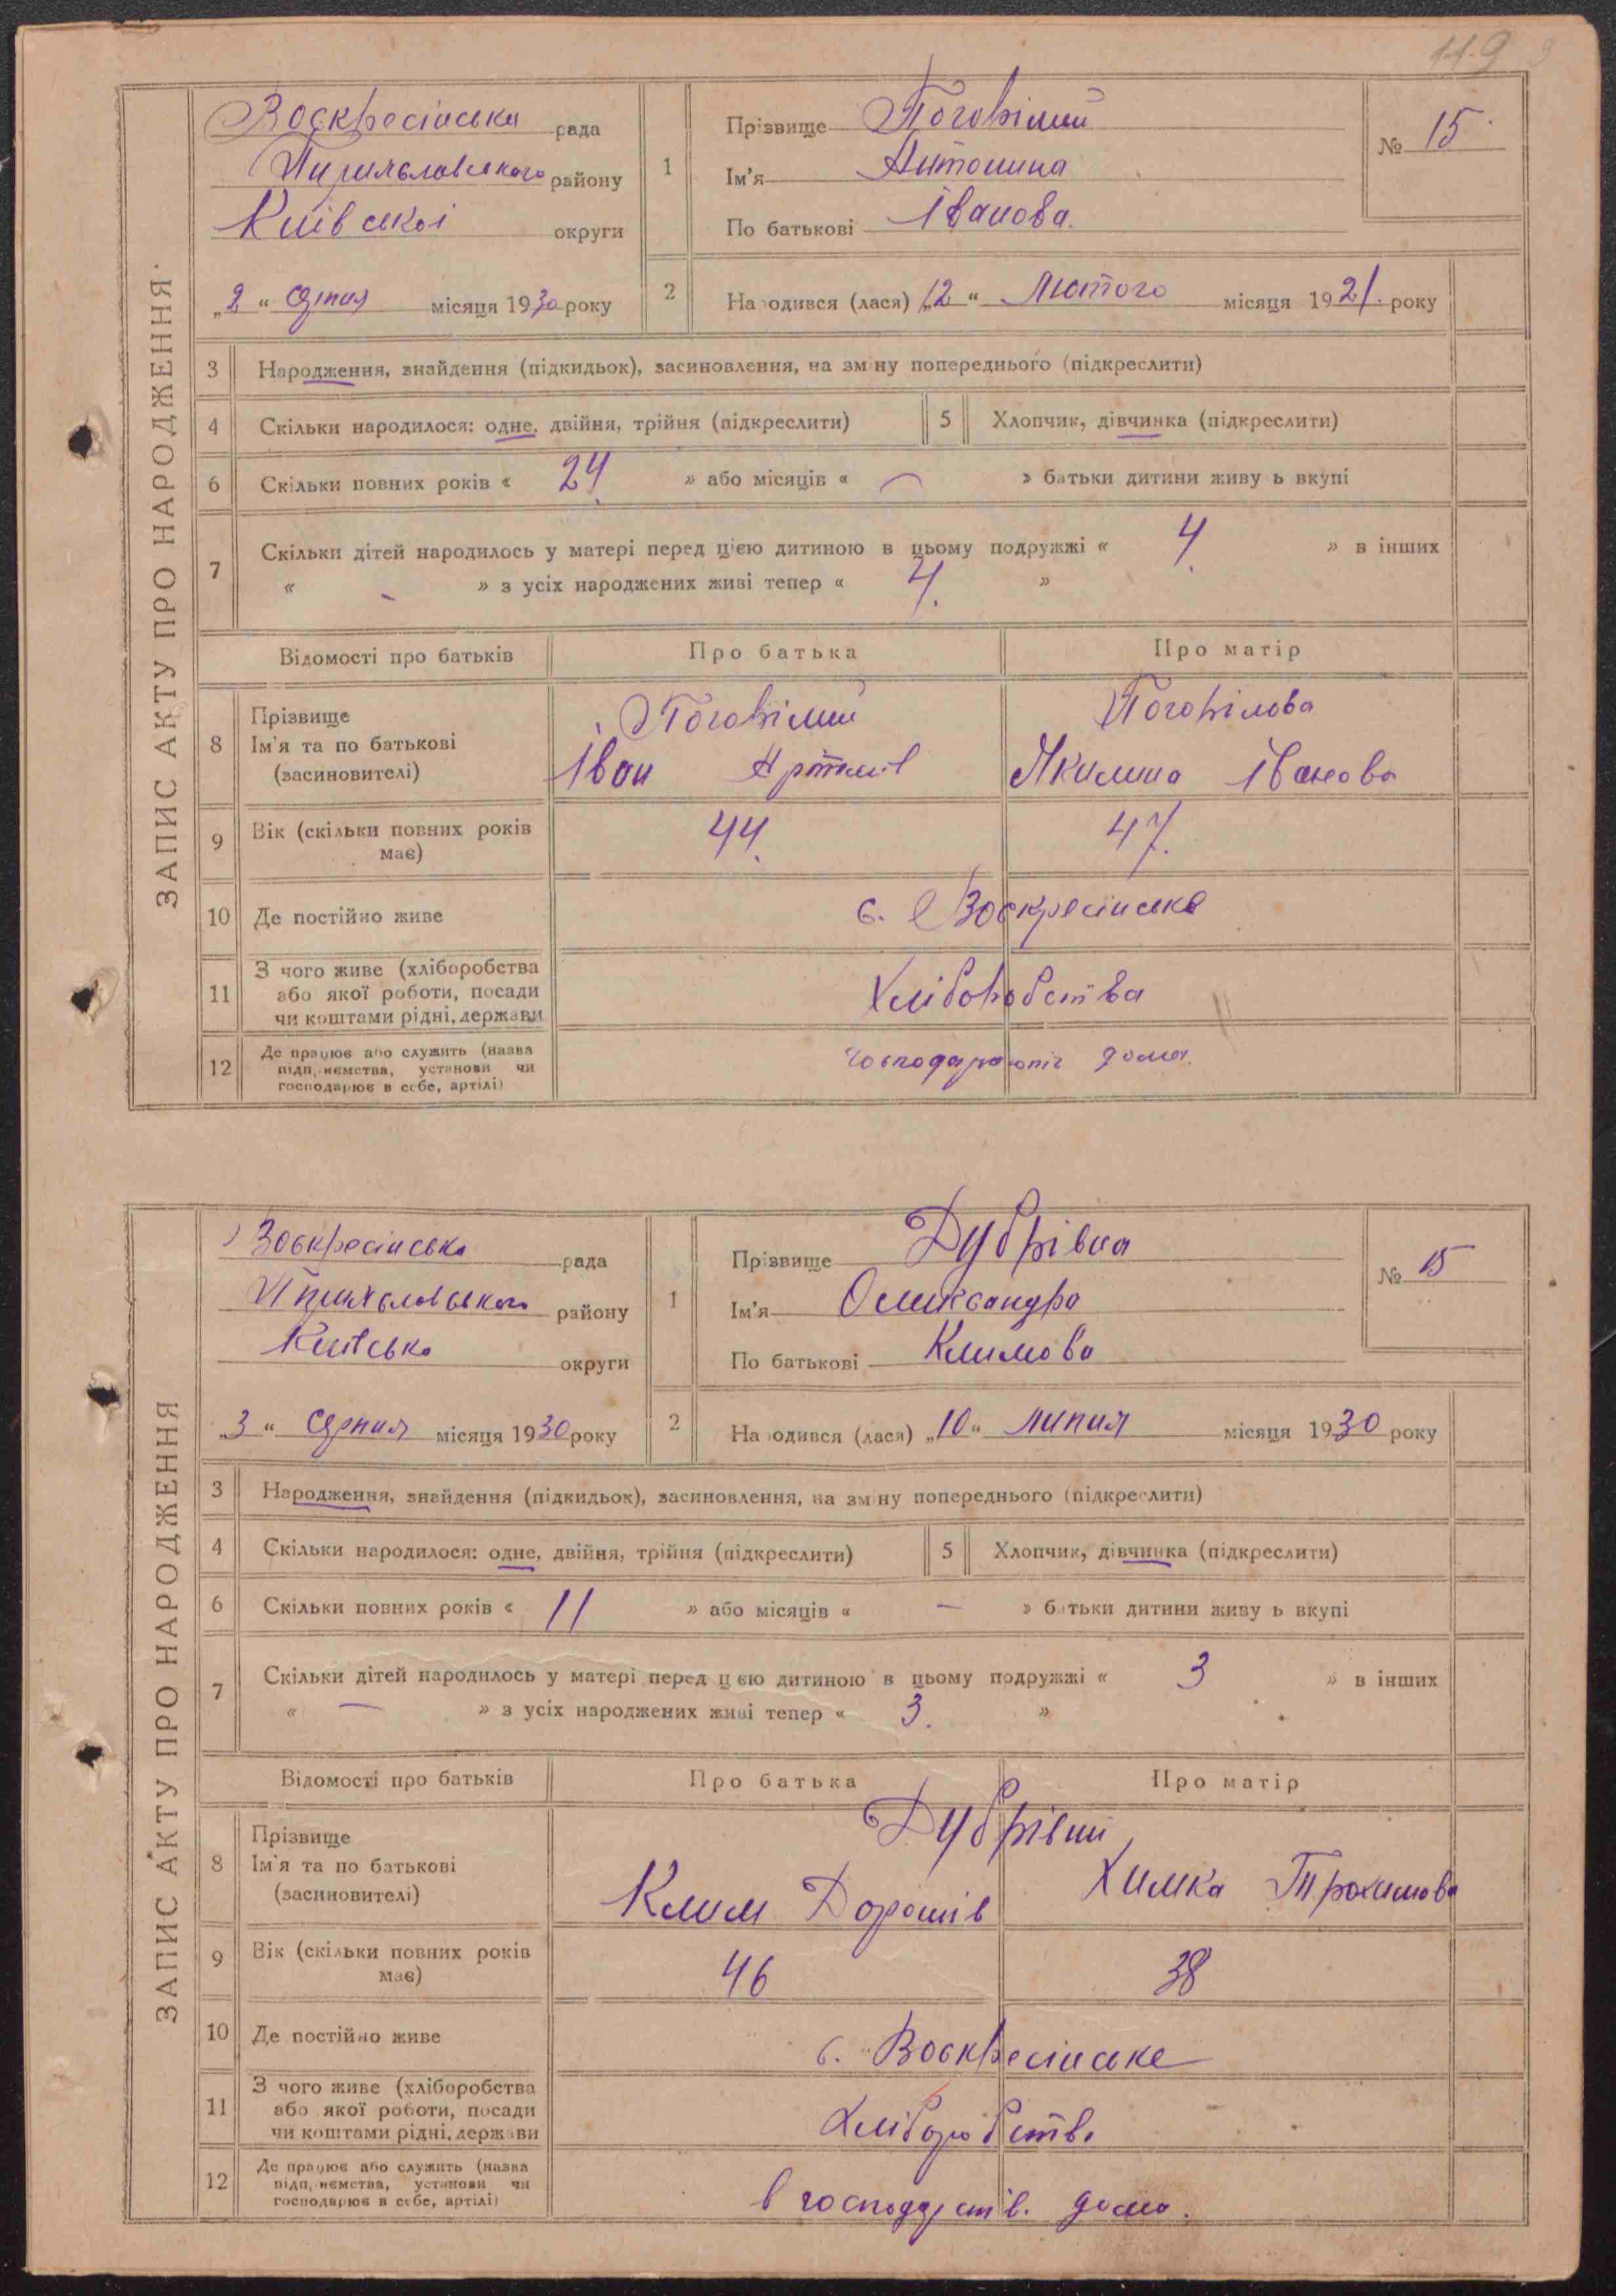 119 9
ЗАПИС АКТУ ПРО НАРОДЖЕННЯ
Воскресінська рада
району
Київської округи
„2“ Серпня місяця 1930 року
1
Прізвище Погорілий
Ім'я Антонина
По батькові Іванова.
№ 15
2
Народився (лася) „12“ Лютого місяця 1921. року
3 Народження, знайдення (підкидьок), засиновлення, на зміну попереднього (підкреслити)
4 Скільки народилося: одне, двійня, трійня (підкреслити) 5 Хлопчик, дівчинка (підкреслити)
6 Скільки повних років « 24. » або місяців « — » батьки дитини живуть вкупі
7 Скільки дітей народилось у матері перед цією дитиною в цьому подружжі « 4. » в інших
« - » з усіх народжених живі тепер « 4. »
Відомості про батьків Про батька Про матір
8 Прізвище Погорілий Погорілова
Ім'я та по батькові Іван Артемів Якилина Іванова
(засиновителі)
9 Вік (скільки повних років має) 44. 47.
10 Де постійно живе с. Воскресінське
11 З чого живе (хліборобства
або якої роботи, посади Хліборобства
чи коштами рідні, держави
12 Де працює або служить (назва
підприємства, установи чи дома.
господарює в себе, артілі)
ЗАПИС АКТУ ПРО НАРОДЖЕННЯ
Воскресінська рада
району
Київська округи
„3“ Серпня місяця 1930 року
1
Прізвище Дубрівна
Ім'я Олександра
По батькові Климова
№ 15
2
Народився (лася) „10“ Липня місяця 1930 року
3 Народження, знайдення (підкидьок), засиновлення, на зміну попереднього (підкреслити)
4 Скільки народилося: одне, двійня, трійня (підкреслити) 5 Хлопчик, дівчинка (підкреслити)
6 Скільки повних років « 11 » або місяців « — » батьки дитини живуть вкупі
7 Скільки дітей народилось у матері перед цією дитиною в цьому подружжі « 3 » в інших
« — » з усіх народжених живі тепер « 3. »
Відомості про батьків Про батька Про матір
8 Прізвище Дубрівні
Ім'я та по батькові Клим Дорошів Химка Трохимова
(засиновителі)
9 Вік (скільки повних років має) 46 38
10 Де постійно живе с. Воскресінське
11 З чого живе (хліборобства
або якої роботи, посади Хліборобств.
чи коштами рідні, держави
12 Де працює або служить (назва
підприємства, установи чи
господарює в себе, артілі) в господарств. дома.